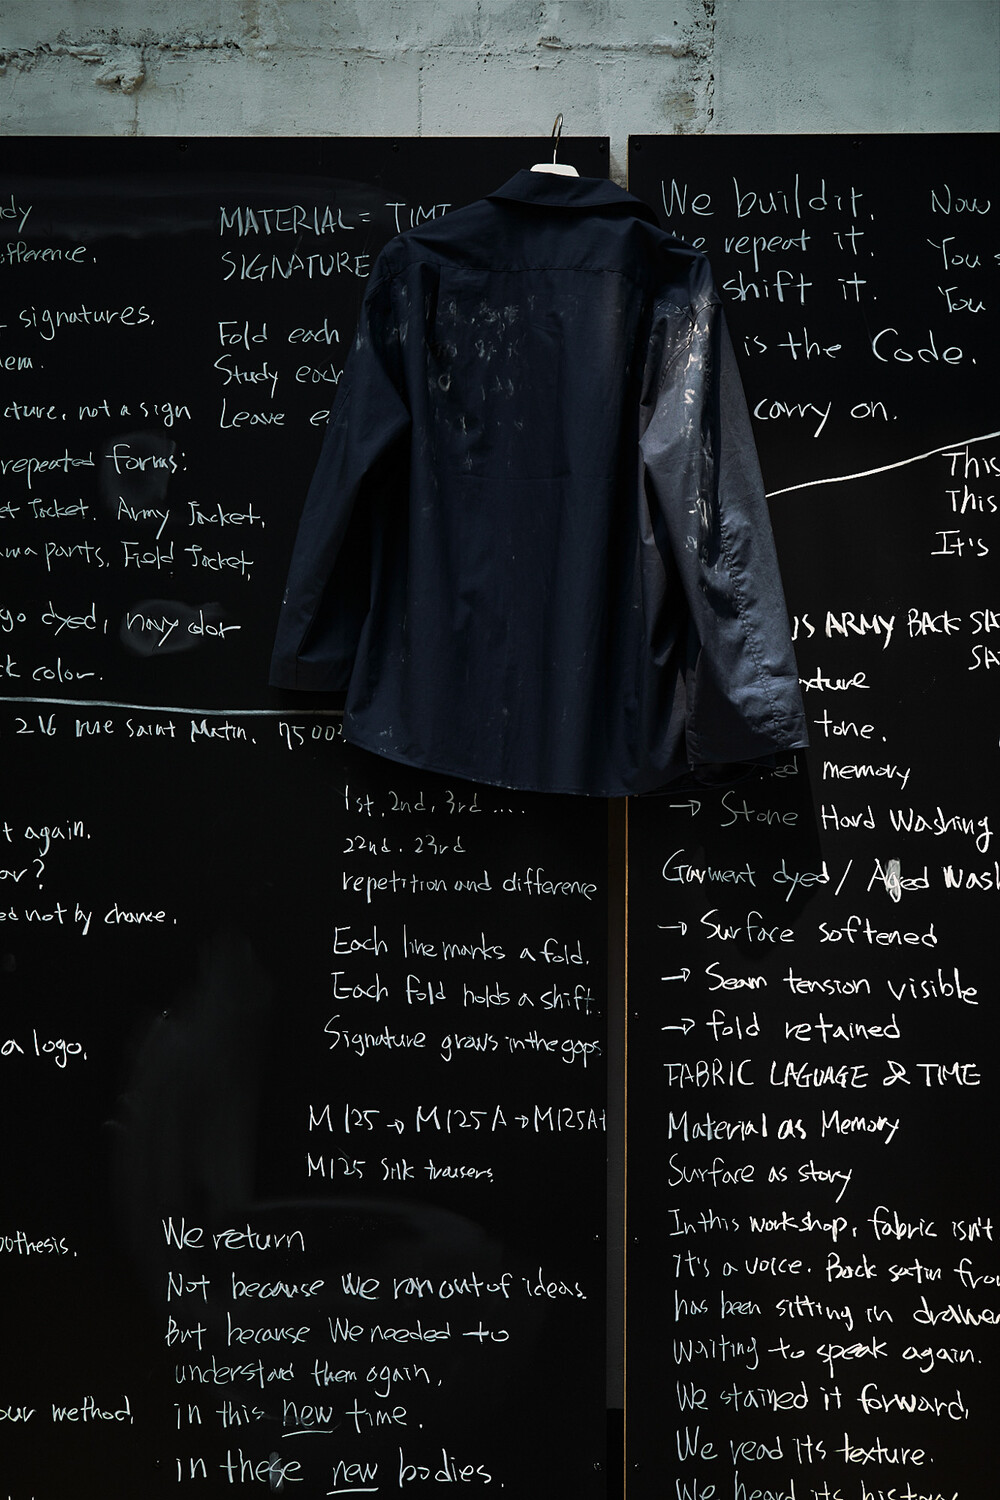 signatures.
cture, not a sign
repeated forms:
et Jacket. Army Jacket,
ma pants, Field Jacket,
go dyed, navy color
ck color.
216 rue Saint Matin. 7500
t again.
or?
ed not by chance.
a logo.
our method,
MATERIAL = TIM
SIGNATURE
Fold each
Study each
Leave e
1st, 2nd, 3rd ....
22nd. 23rd
repetition and difference
Each line marks a fold.
Each fold holds a shift.
Signature grows in the gaps.
M125 → M125A → M125A+
M125 Silk trousers.
We return
Not because We ran out of ideas.
But because We needed to
understand them again,
in this new time.
in these new bodies.
We build it.
repeat it.
shift it.
is the Code.
carry on.
Now
You
You
This
This
It's
IS ARMY BACK SA
SA
xture
tone.
ed memory
→ Stone Hard Washing
Garment dyed / Aged Wash
→ Surface softened
→ Seam tension visible
→ fold retained
FABRIC LAGUAGE & TIME
Material as Memory
Surface as story
In this workshop, fabric isn't
It's a voice. Back satin fro
has been sitting in drawer
waiting to speak again.
We stained it forward,
We read its texture.
We heard its history